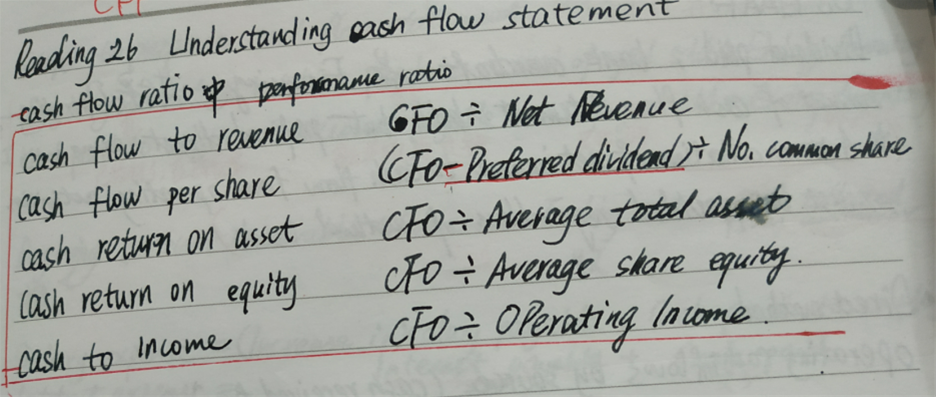 Reading 26 Understanding cash flow statement
cash flow ratio performance ratio
cash flow to revenue CFO ÷ Net Revenue
cash flow per share (CFO-Preferred dividend)÷ No. common share
cash return on asset CFO ÷ Average total asset
cash return on equity CFO ÷ Average share equity.
cash to income CFO ÷ Operating Income.